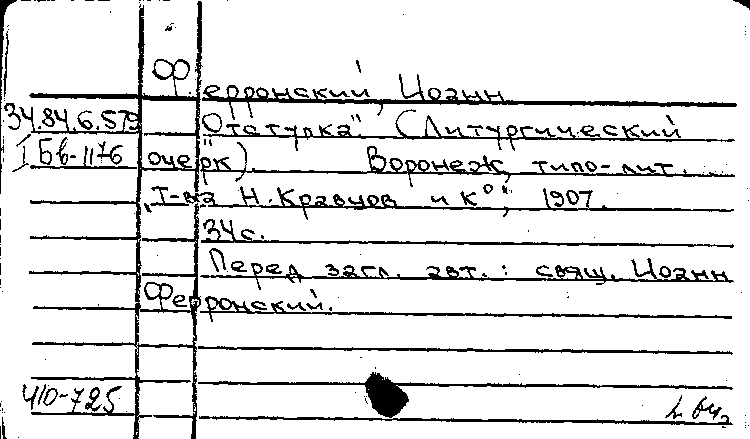 Ферронский, Иоанн
34.84.6.579 "Отступка". (Литургический
I Бв-1176 очерк). Воронеж, типо-лит.
„Т-ва Н. Кравцов и К°", 1907.
34 с.
Перед загл. авт.: свящ. Иоанн
Ферронский.
Ч10-725